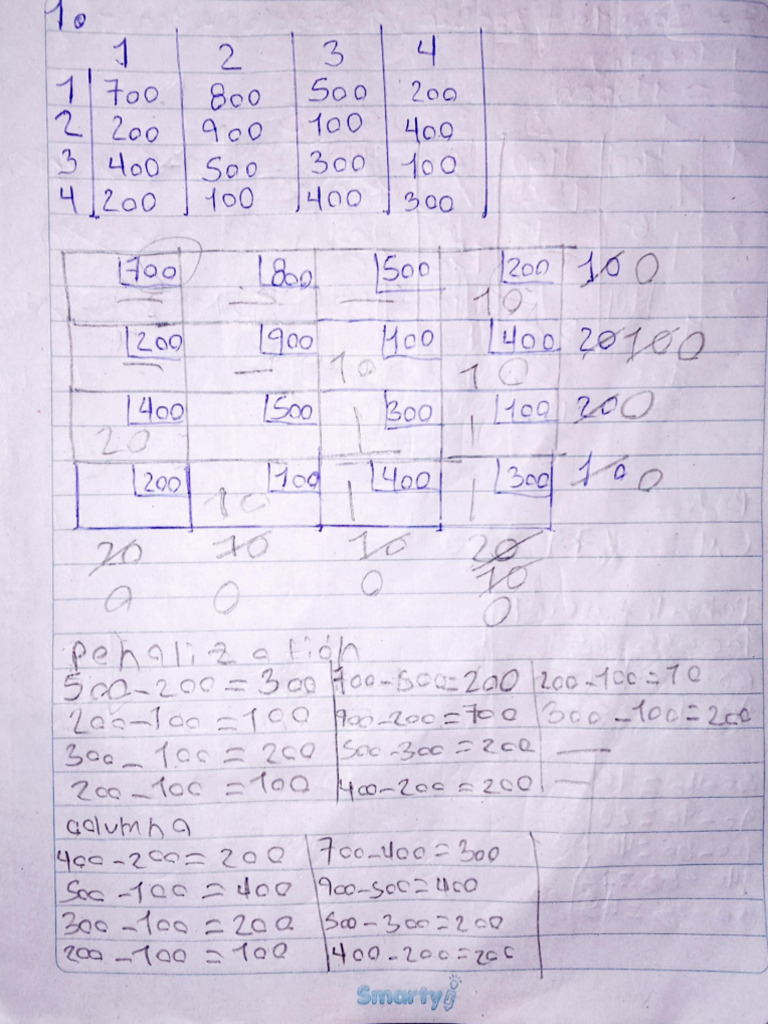 1.
1 2 3 4
1 700 800 500 200
2 200 900 100 400
3 400 500 300 100
4 200 100 400 300
700 800 500 200 10 0
10
200 900 100 400 20 10 0
10 10
400 500 300 100 20 0
20
200 100 400 300 10 0
10
20 10 10 20
0 0 0 10
0
penalización
500-200=300 700-500=200 200-100=10
200-100=100 900-200=700 300-100=200
300-100=200 500-300=200 —
200-100=100 400-200=200 —
columna
400-200=200 700-400=300
500-100=400 900-500=400
300-100=200 500-300=200
200-100=100 400-200=200
Smarty